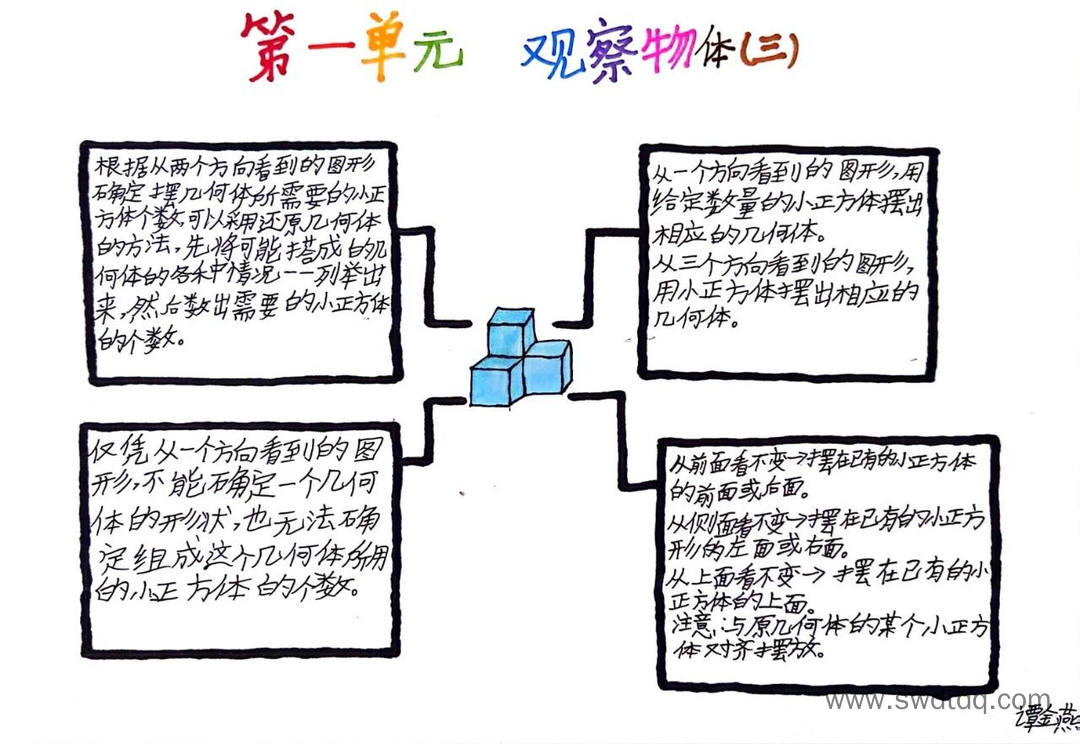 第一单元 观察物体(三)
根据从两个方向看到的图形
确定摆几何体所需要的小正
方体个数,可以采用还原几何体
的方法,先将可能搭成的几
何体的各种情况一一列举出
来,然后数出需要的小正方体
的个数。
从一个方向看到的图形,用
给定数量的小正方体摆出
相应的几何体。
从三个方向看到的图形,
用小正方体摆出相应的
几何体。
仅凭从一个方向看到的图
形,不能确定一个几何
体的形状,也无法确
定组成这个几何体所用
的小正方体的个数。
从前面看不变→摆在已有的小正方体
的前面或后面。
从侧面看不变→摆在已有的小正方
形的左面或右面。
从上面看不变→摆在已有的小
正方体的上面。
注意:与原几何体的某个小正方
体对齐摆放。
www.swdtdq.com
谭金燕